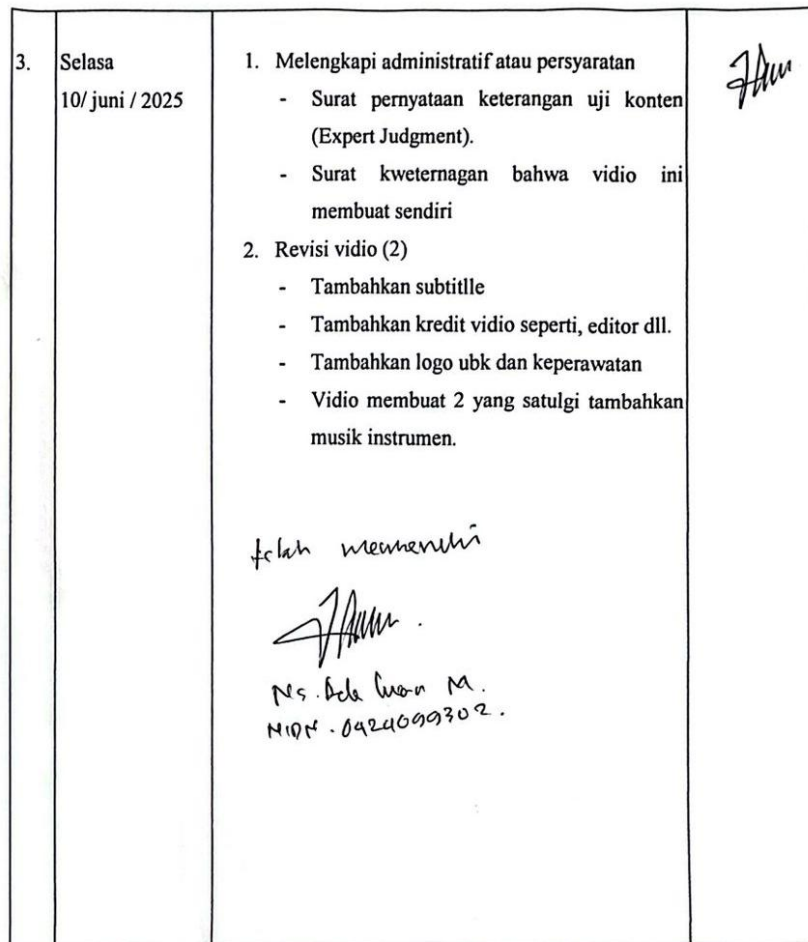 3.
Selasa
10/ juni / 2025
1. Melengkapi administratif atau persyaratan
- Surat pernyataan keterangan uji konten
(Expert Judgment).
- Surat kweternagan bahwa vidio ini
membuat sendiri
2. Revisi vidio (2)
- Tambahkan subtitlle
- Tambahkan kredit vidio seperti, editor dll.
- Tambahkan logo ubk dan keperawatan
- Vidio membuat 2 yang satulgi tambahkan
musik instrumen.
telah memenuhi
Ns. Ade M.
NIDN . 0424099302 .